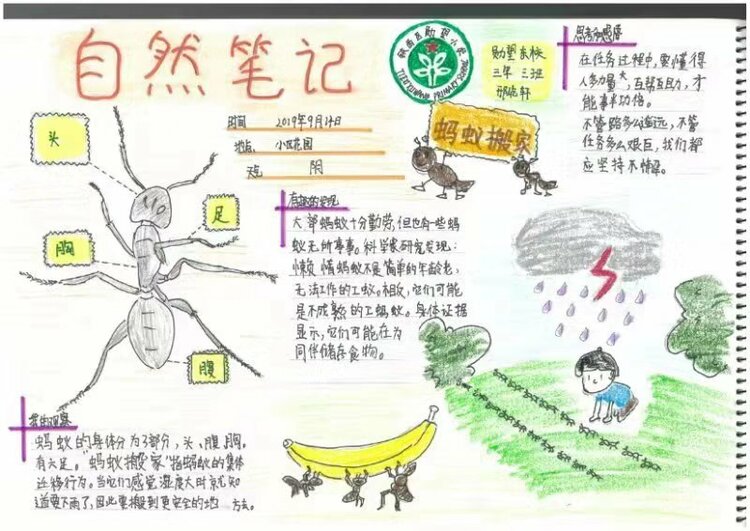 自然笔记
铁西区勋望小学
TIEXI XUNWANG PRIMARY SCHOOL
勋望东校
三年三班
时间 2019年9月14日
地点 小区花园
天气 阴
蚂蚁搬家
头
足
胸
腹
思考和感悟
在任务过程中,要懂得
人多力量大,互帮互助,才
能事半功倍。
不管路多么遥远,不管
任务多么艰巨,我们都
应坚持不懈。
有趣的发现
大部蚂蚁十分勤劳,但也有一些蚂
蚁无所事事。科学家研究发现:
懒惰蚂蚁不是简单的年龄老,
无法工作的工蚁。相反,它们可能
是不成熟的工蚂蚁。身体证据
显示,它们可能在为
同伴储存食物。
我的观察
蚂蚁的身体分为3部分,头、腹、胸。
有六足。“蚂蚁搬家”指蚂蚁的集体
迁移行为。当它们感觉湿度大时就知
道要下雨了,因此要搬到更安全的地方去。